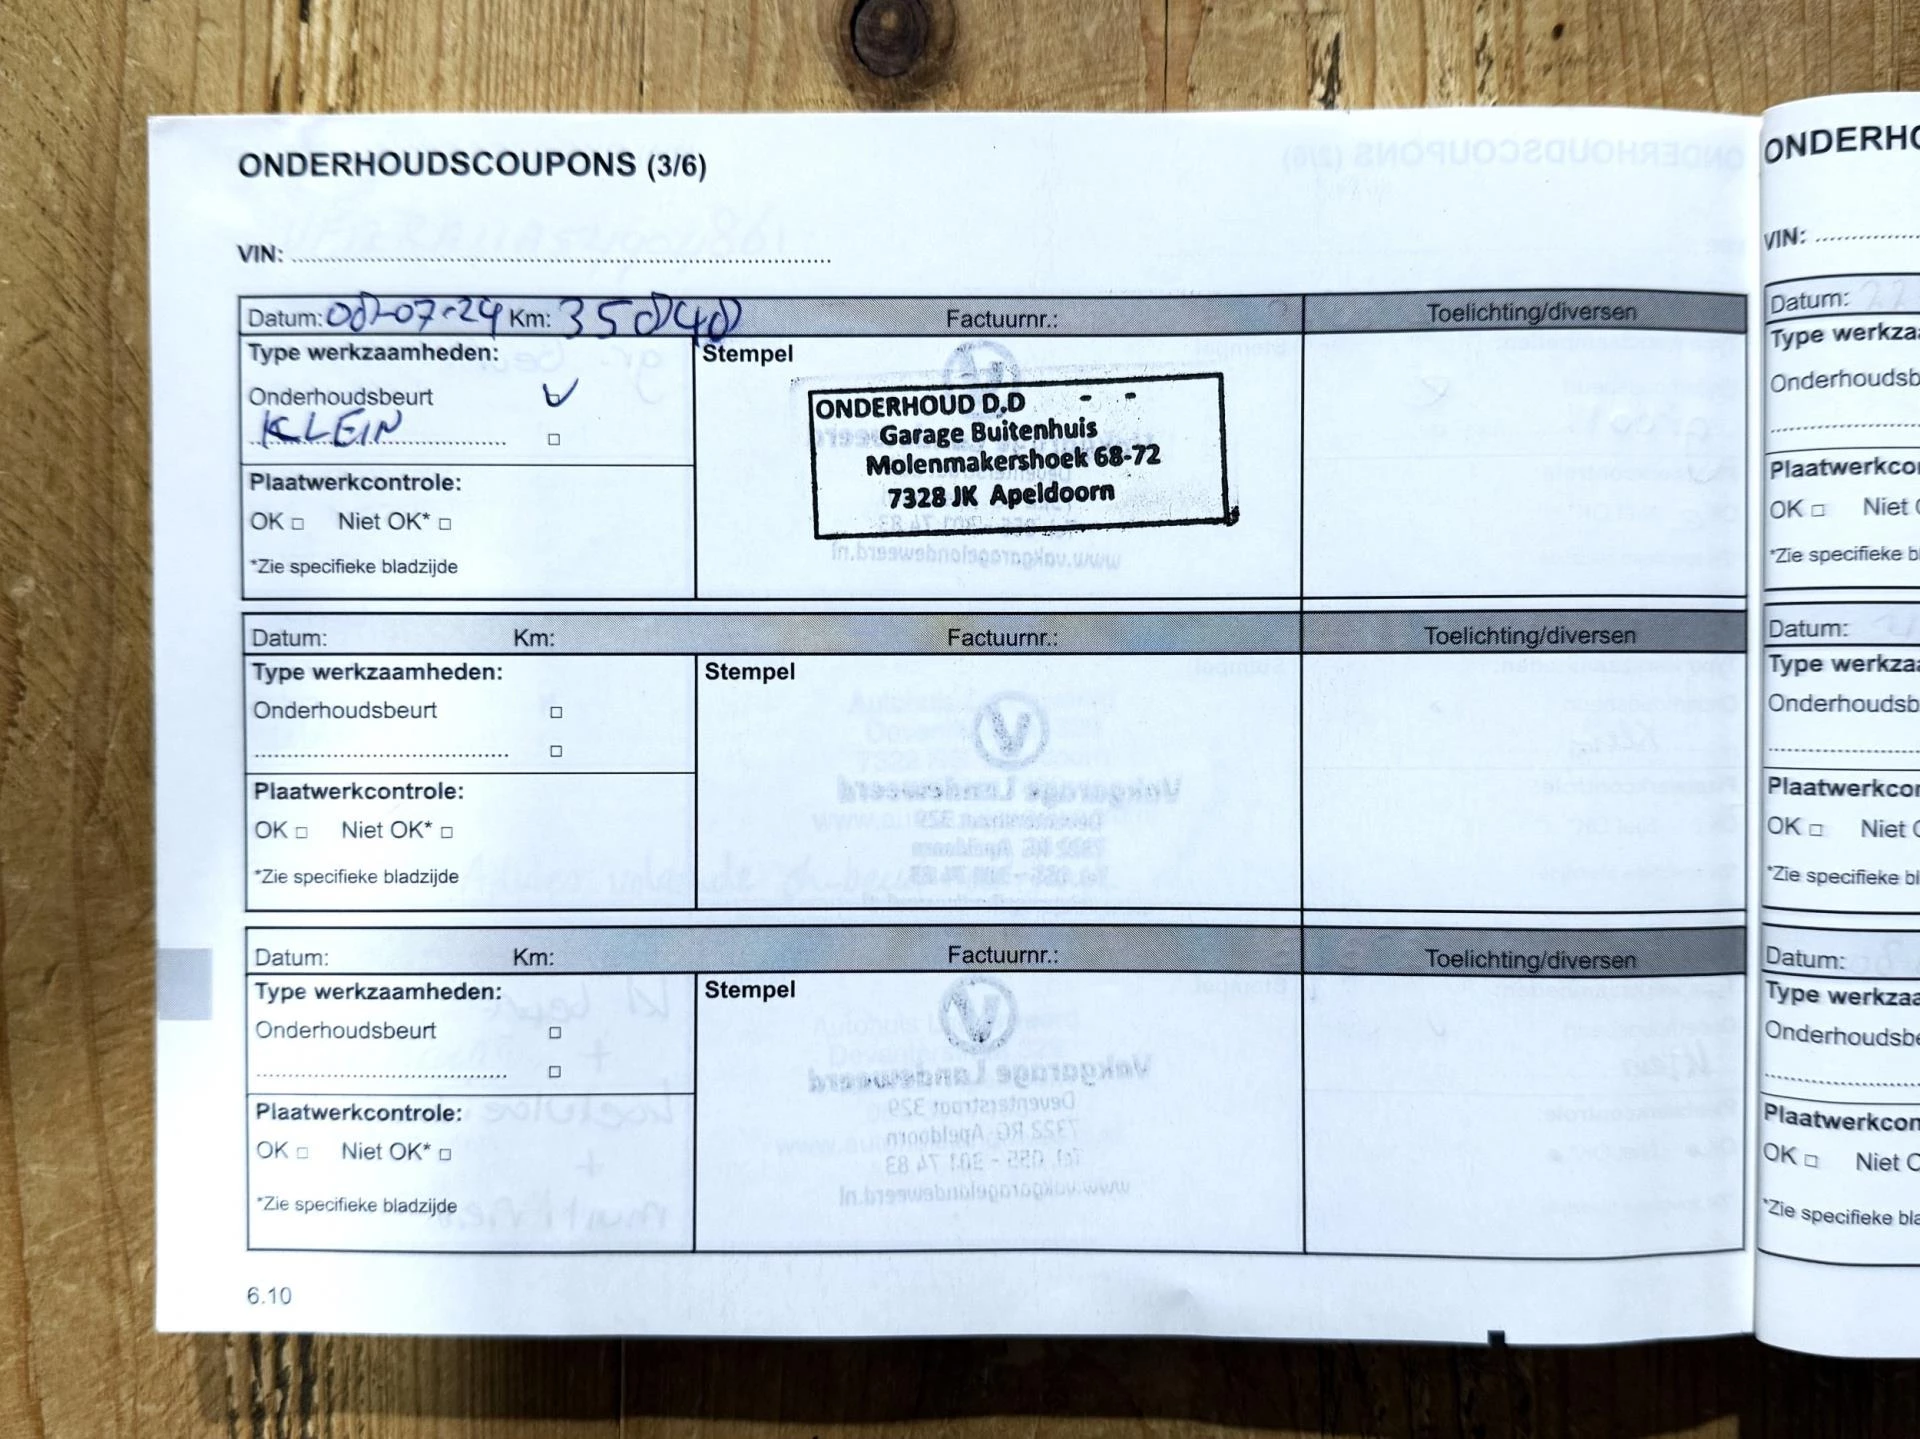 ONDERHOUDSCOUPONS (3/6)
VIN:
Datum: 08-07-24 Km: 35848 Factuurnr.: Toelichting/diversen
Type werkzaamheden: Stempel
Onderhoudsbeurt
KLEIN
Plaatwerkcontrole:
OK Niet OK*
*Zie specifieke bladzijde
ONDERHOUD D.D
Garage Buitenhuis
Molenmakershoek 68-72
7328 JK Apeldoorn
Datum: Km: Factuurnr.: Toelichting/diversen
Type werkzaamheden: Stempel
Onderhoudsbeurt
Plaatwerkcontrole:
OK Niet OK*
*Zie specifieke bladzijde
Datum: Km: Factuurnr.: Toelichting/diversen
Type werkzaamheden: Stempel
Onderhoudsbeurt
Plaatwerkcontrole:
OK Niet OK*
*Zie specifieke bladzijde
6.10
ONDERHO
VIN:
Datum:
Type werkza
Onderhoudsb
Plaatwerkco
OK Niet
*Zie specifieke b
Datum:
Type werkza
Onderhoudsb
Plaatwerkcor
OK Niet
*Zie specifieke bl
Datum:
Type werkzaa
Onderhoudsbe
Plaatwerkcon
OK Niet
*Zie specifieke bla